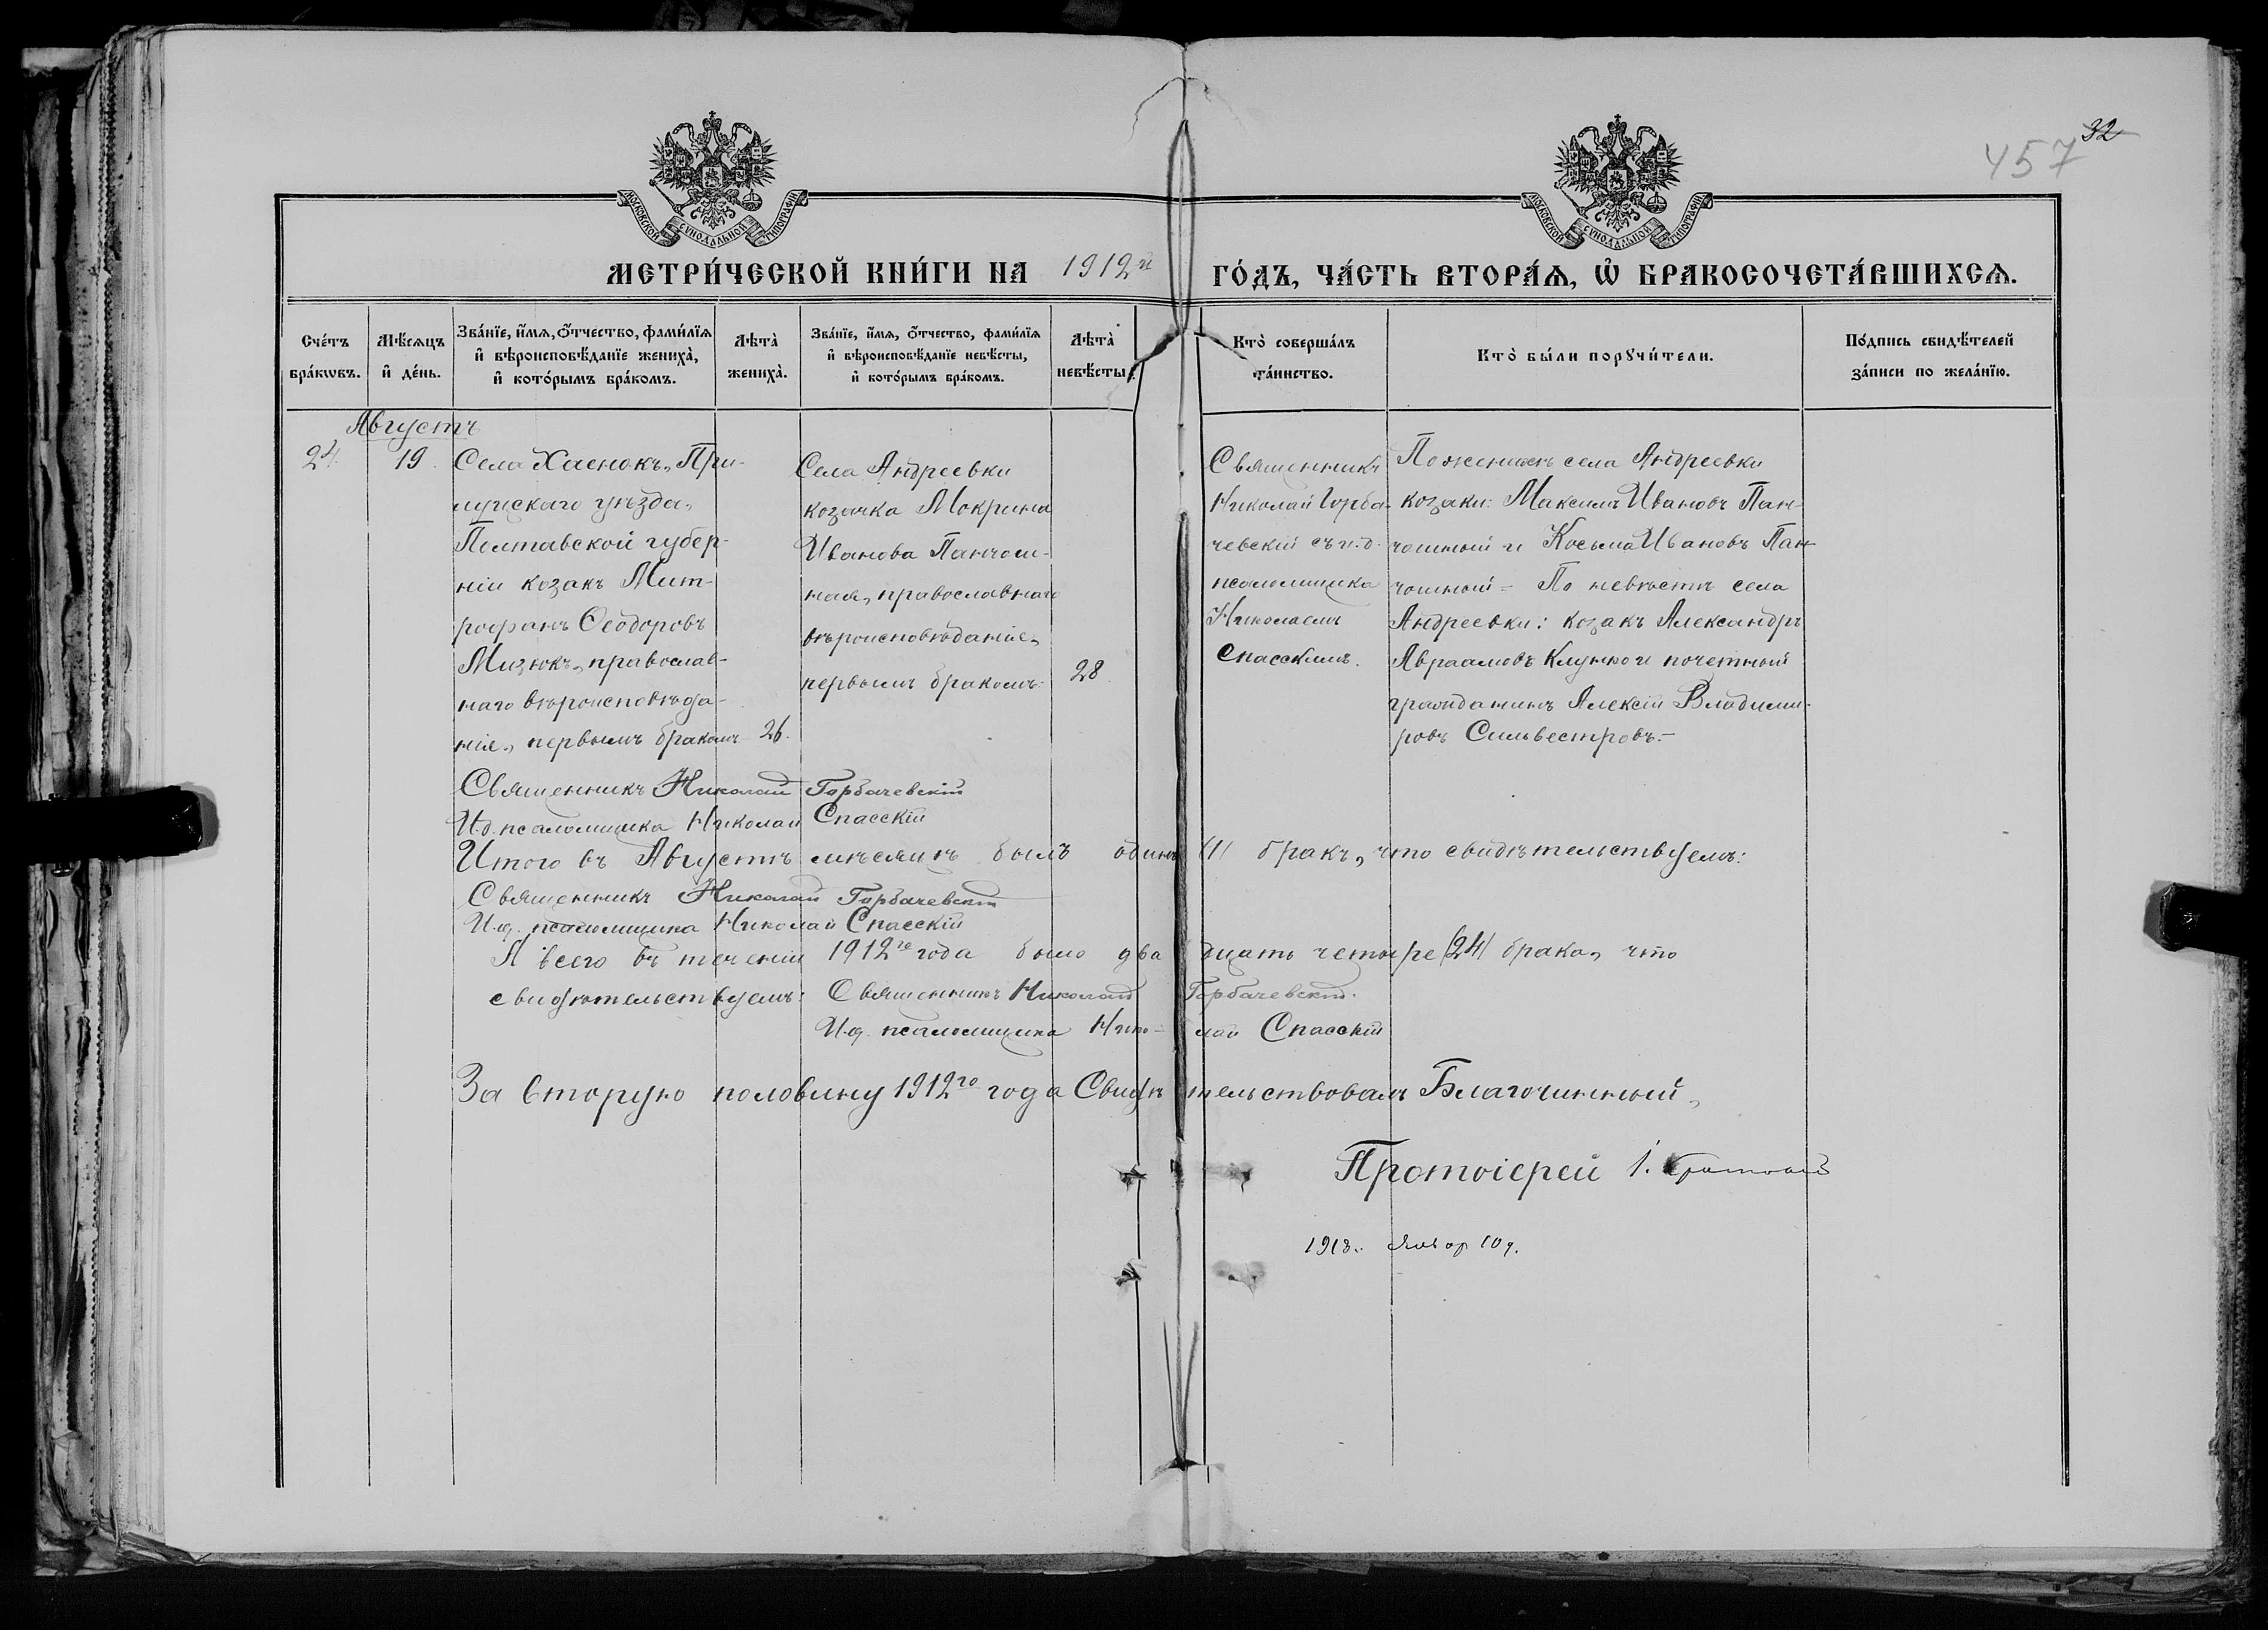 32
457
МОСКОВСКОЙ СѴНОДАЛЬНОЙ ТИПОГРАФІИ
МОСКОВСКОЙ СѴНОДАЛЬНОЙ ТИПОГРАФІИ
МЕТРИ́ЧЕСКОЙ КНИ́ГИ НА 1912й ГО́ДЪ, ЧА́СТЬ ВТОРА́Ѧ, Ѽ БРАКОСОЧЕТА́ВШИХСѦ.
Сче́тъ бра́кѡвъ.
Мѣ́сѧцъ и҆ де́нь.
Зва́нїе, и҆́мѧ, ѻ҆́тчество, фами́лїѧ
и҆ вѣроисповѣ́данїе жениха̀,
и҆ кото́рымъ бра́комъ.
Лѣта̀ жениха̀.
Зва́нїе, и҆́мѧ, ѻ҆́тчество, фами́лїѧ
и҆ вѣроисповѣ́данїе невѣ́сты,
и҆ кото́рымъ бра́комъ.
Лѣта̀ невѣ́сты.
Кто̀ соверша́лъ та́инство.
Кто̀ бы́ли порꙋчи́тели.
По́дпись свидѣ́телей
за́писи по жела́нїю.
Августъ
24. 19.
Села Хаенокъ, При-
луцкаго уѣзда,
Полтавской губер-
ніи козакъ Мит-
рофанъ Ѳеодоровъ
Мизюкъ, православ-
наго вѣроисповѣда-
нія, первымъ бракомъ 26.
Села Андреевки
козачка Мокрина
Иванова Панчош-
ная, православнаго
вѣроисповѣданія,
первымъ бракомъ. 28.
Священникъ
Николай Горба-
чевскій съ и.д.
псаломщика
Николаемъ
Спасскимъ.
По женихѣ села Андреевки
козаки: Максимъ Ивановъ Пан-
чошный и Косьма Ивановъ Пан-
чошный – По невѣстѣ села
Андреевки: козакъ Александръ
Авраамовъ и почетный
гражданинъ Алексій Владими-
ровъ Сильвестровъ. –
Священникъ Николай Горбачевскій
И.д. псаломщика Николай Спасскій
Итого въ Августѣ мѣсяцѣ былъ одинъ /1/ бракъ, что свидѣтельствуемъ:
Священникъ Николай Горбачевскій
И.д. псаломщика Николай Спасскій
А всего въ теченіи 1912го года было двадцать четыре /24/ брака, что
свидѣтельствуемъ: Священникъ Николай Горбачевскій.
И.д. псаломщика Николай Спасскій
За вторую половину 1912го года Свидѣтельствовалъ Благочинный,
Протоіерей І.
1913. Январ 10 д.